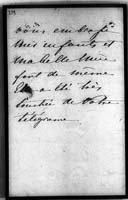 vous embrasse
mes enfants et
ma belle mère
font de même
Elle a été très
touchée de votre
télégramme